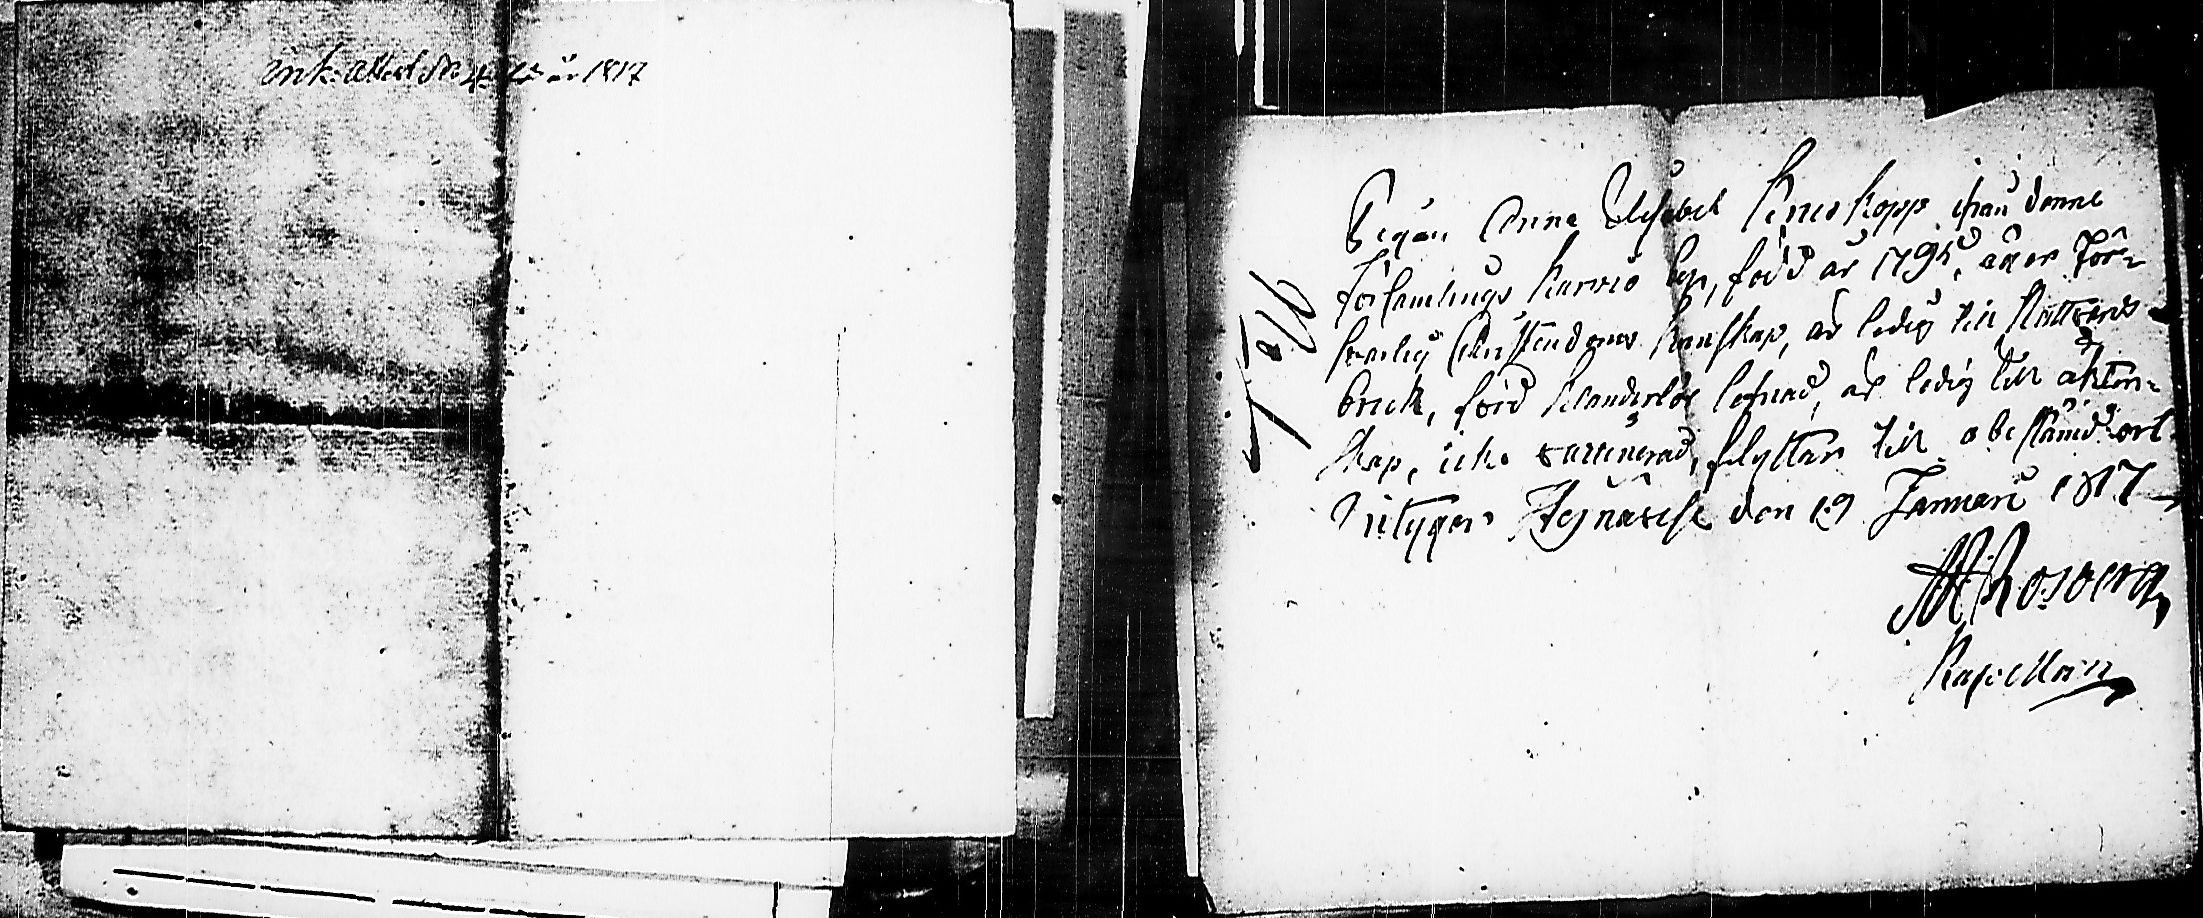 Ink. Attest No 4 år 1817
Pigan Anna Elisabet Kinoskopp ifrån denne
församlings Karvio by, född år 1795, äger För-
svarlig Christendoms kunskap, är ledig till Nattvards
bruk, förd klanderlös lefnad, är ledig till äkten-
skap, icke vaccinerad, flyttar till obestämd ort.
intygar Hejnävesi den 19 Januari 1817
Rosberg
Kapellan